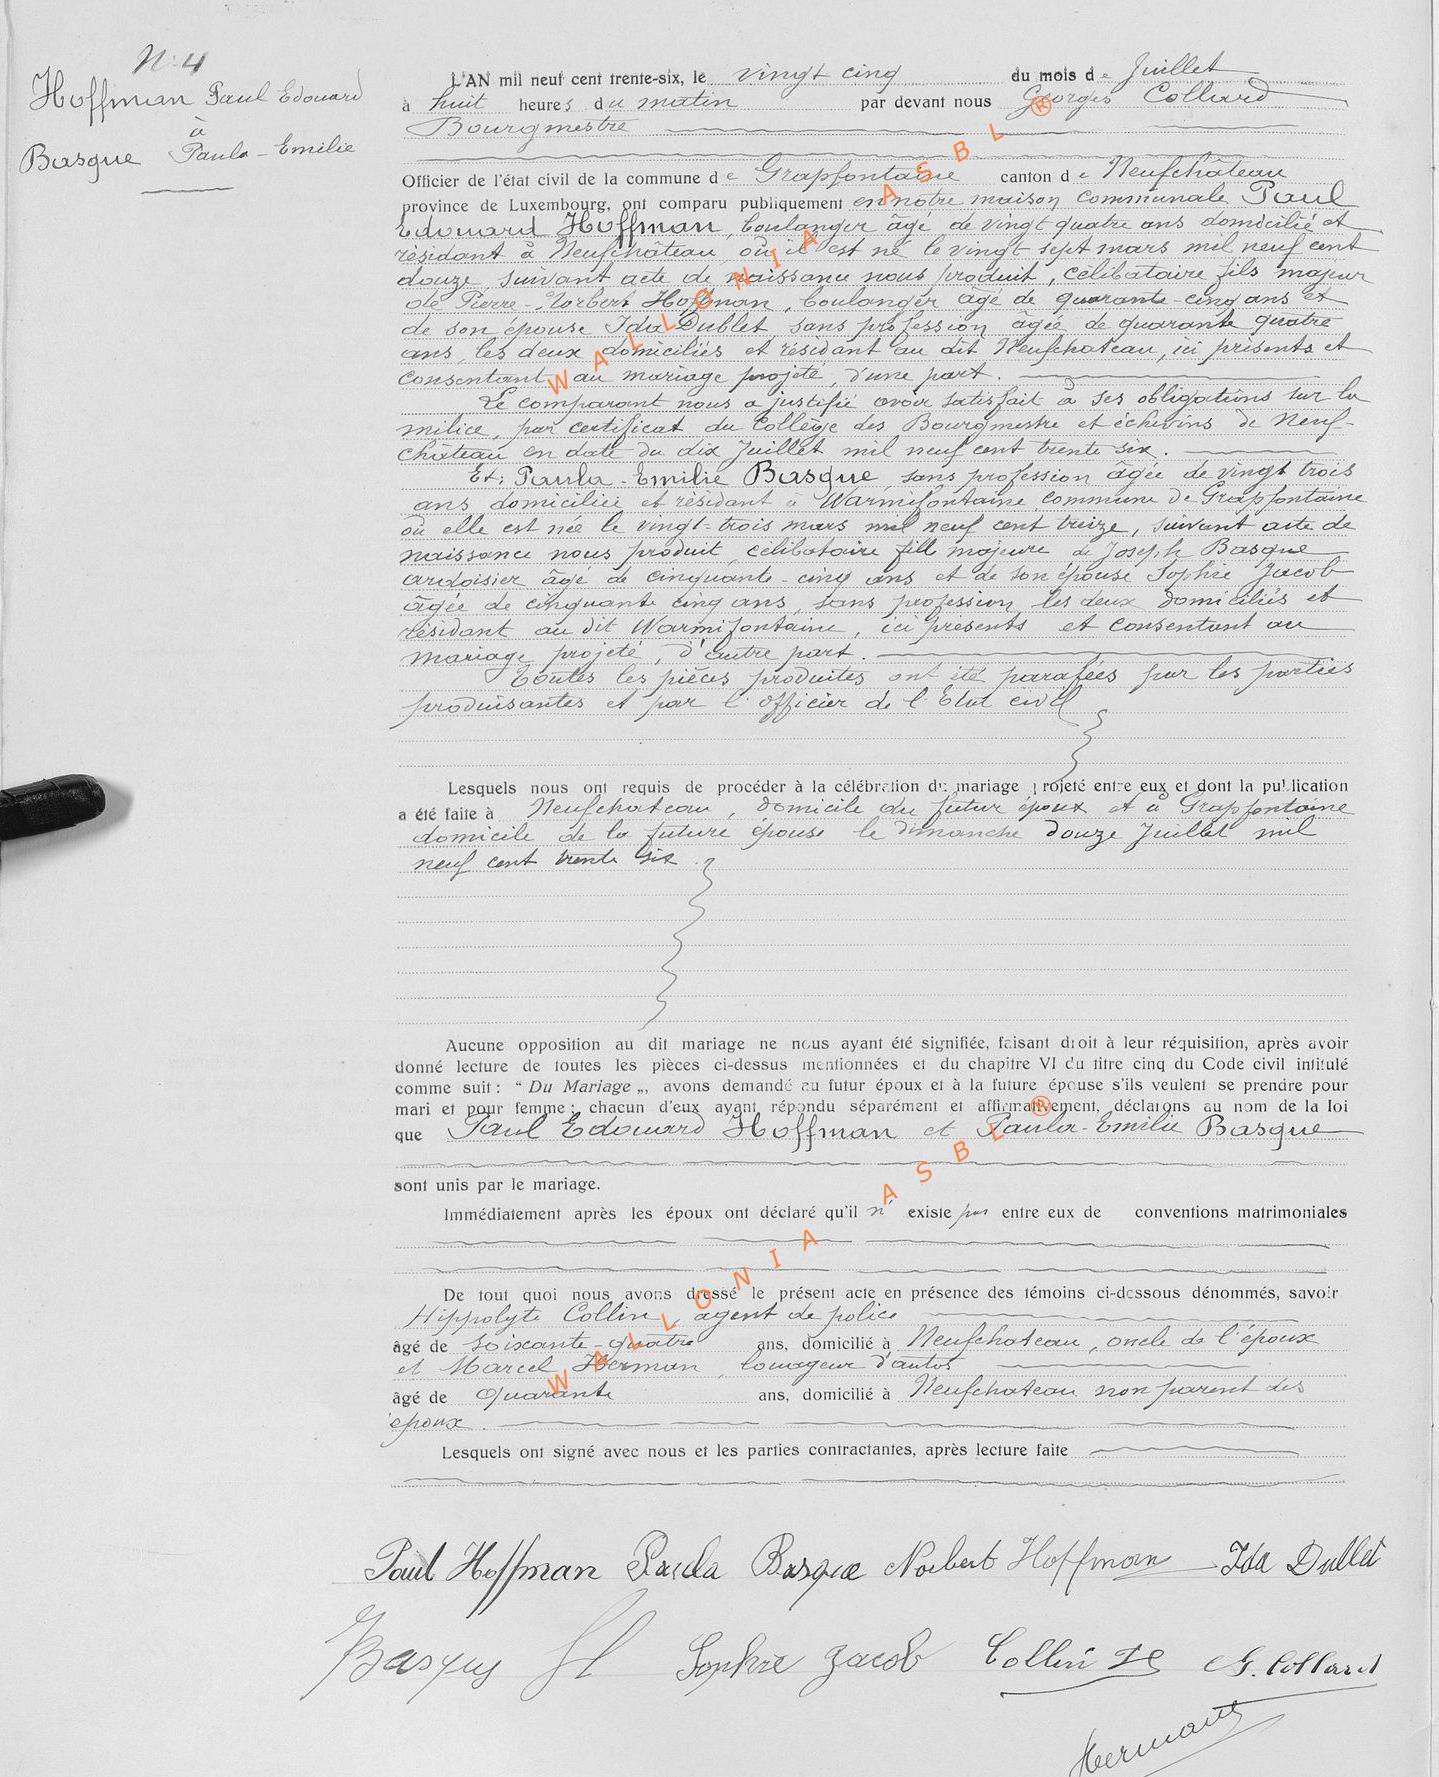 N. 4
Hoffman Paul Edouard
à
Basque Paula-Emilie
L'AN mil neuf cent trente-six, le vingt cinq du mois de Juillet
à huit heures du matin par devant nous Georges Collard
Bourgmestre
Officier de l'état civil de la commune de Grapfontaine canton de Neufchâteau
province de Luxembourg, ont comparu publiquement en notre maison communale Paul
Edouard Hoffman, boulanger âgé de vingt quatre ans domicilié et
résidant à Neufchâteau, où il est né le vingt sept mars mil neuf cent
douze, suivant acte de naissance nous produit, célibataire fils majeur
de Pierre-Norbert Hoffman, boulanger âgé de quarante-cinq ans et
de son épouse Ida Dublet, sans profession âgée de quarante quatre
ans, les deux domiciliés et résidant au dit Neufchateau, ici présents et
consentant au mariage projeté, d'une part.
Le comparant nous a justifié avoir satisfait à ses obligations sur la
milice, par certificat du Collège des Bourgmestre et échevins de Neuf-
château en date du dix Juillet mil neuf cent trente six.
Et: Paula-Emilie Basque, sans profession âgée de vingt trois
ans domiciliée et résidant à Warmifontaine, commune de Grapfontaine
où elle est née le vingt-trois mars mil neuf cent treize, suivant acte de
naissance nous produit, célibataire fille majeure de Joseph Basque
ardoisier âgé de cinquante-cinq ans et de son épouse Sophie Jacob
âgée de cinquante cinq ans, sans profession les deux domiciliés et
résidant au dit Warmifontaine, ici présents et consentant au
mariage projeté, d'autre part.
Toutes les pièces produites ont été parafées par les parties
produisantes et par l'officier de l'Etat civil
Lesquels nous ont requis de procéder à la célébration du mariage projeté entre eux et dont la publication
a été faite à Neufchateau, domicile du futur époux et à Grapfontaine
domicile de la future épouse le dimanche douze Juillet mil
neuf cent trente six.
Aucune opposition au dit mariage ne nous ayant été signifiée, faisant droit à leur réquisition, après avoir
donné lecture de toutes les pièces ci-dessus mentionnées et du chapitre VI du titre cinq du Code civil intitulé
comme suit : “ Du Mariage „, avons demandé au futur époux et à la future épouse s'ils veulent se prendre pour
mari et pour femme ; chacun d'eux ayant répondu séparément et affirmativement, déclarons au nom de la loi
que Paul Edouard Hoffman et Paula-Emilie Basque
sont unis par le mariage.
Immédiatement après les époux ont déclaré qu'il n' existe pas entre eux de conventions matrimoniales
De tout quoi nous avons dressé le présent acte en présence des témoins ci-dessous dénommés, savoir
Hippolyte Collin, agent de police
âgé de soixante-quatre ans, domicilié à Neufchateau, oncle de l'époux
et Marcel Herman, louageur d'autos
âgé de quarante ans, domicilié à Neufchateau non parent des
époux.
Lesquels ont signé avec nous et les parties contractantes, après lecture faite
Paul Hoffman Paula Basque Norbert Hoffman Ida Dullet
Basque Sophie Jacob Collin G. Collard
Hermant
WALLONIA ASBL ®
WALLONIA ASBL ®